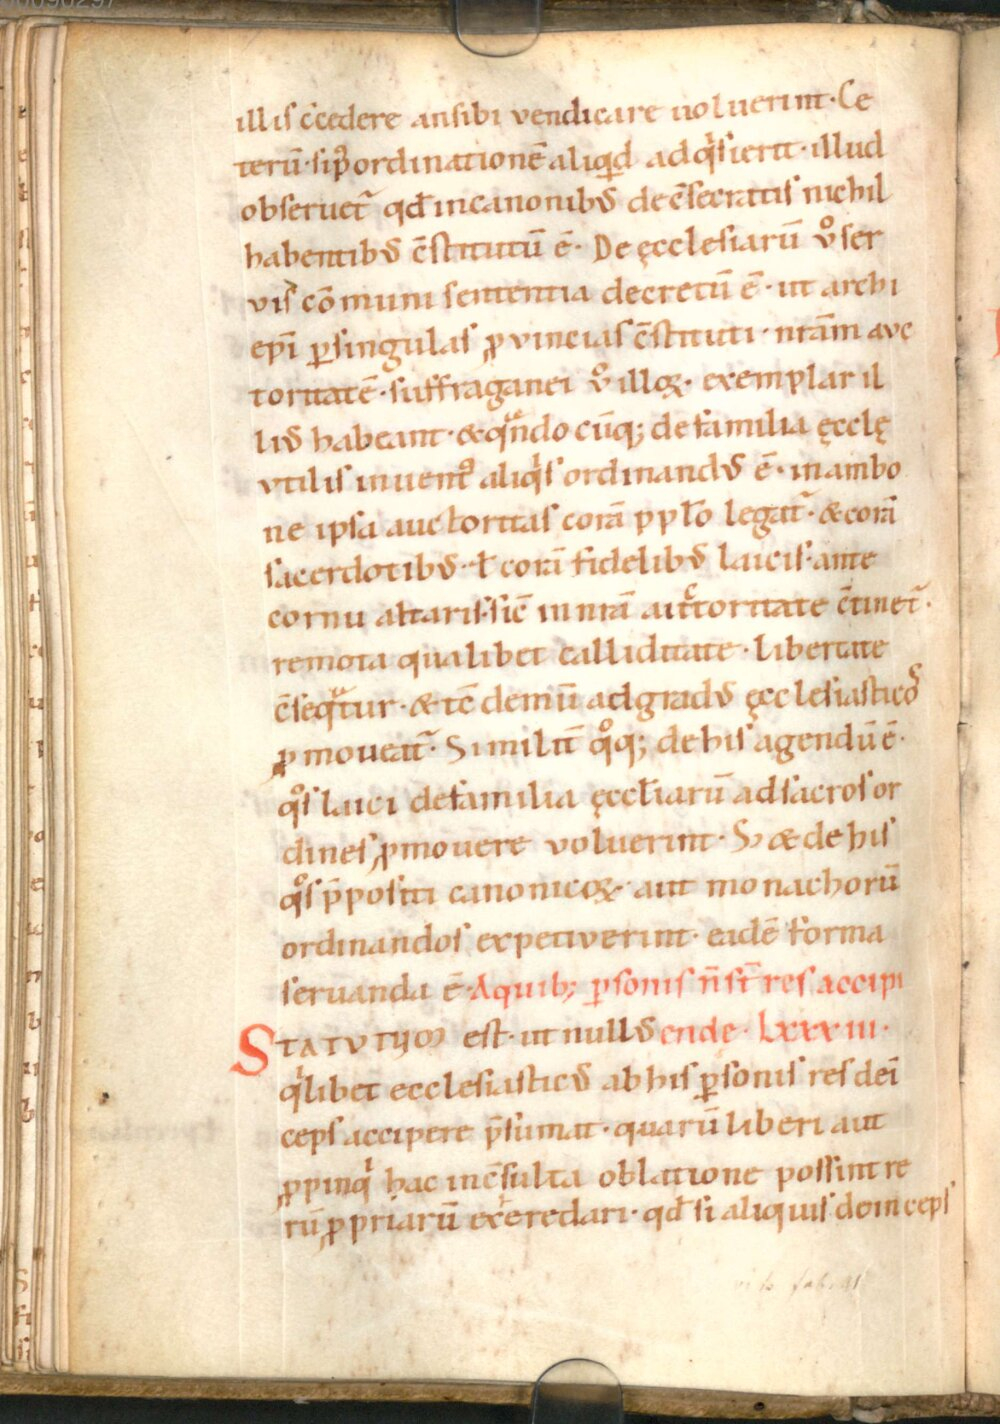 illis c̄cedere an sibi vendicare uoluerint· Ce
terū· si p̄ ordinationē aliqͥd adqͥsierit· illud
obseruet᷑ qđ in canonibꝰ de c̄secratis nichil
habentibꝰ c̄stitutū ē· De ęcclesiarū v̊ ser
vis cōmuni sententia decretū ē· ut archi
epī ꝑ singulas ꝓvincias c̄stituti· nr̄am auc
toritatē· suffraganei v̊ illoꝝ· exemplar il
liꝰ habeant· & qͣndo cūq; de familia ęcclę
vtilis inuent᷑ aliqͥs ordinandꝰ ē· in ambo
ne ipsa auctoritas corā pplo legat᷑· & corā
sacerdotibꝰ· ł corā fidelibꝰ laicis· ante
cornu altaris· sic̄ in nr̄a auctoritate c̄tinet᷑·
remota qualibet calliditate· libertate
c̄seqͣtur· & tc̄ demū ad gradꝰ ęcclesiasticos
ꝓmoueat᷑· Similit̄ qͦq; de his agendū ē·
qͦs laici de familia ęccłiarū ad sacros or
dines ꝓmouere voluerint· S; & de his
qͦs p̄positi canonicoꝝ· aut monachorū
ordinandos expetiverint· eadē forma
seruanda ē· A quib; ꝑsonis n̄ st̄ res accipi
STATVTUM est· ut nullꝰ ende· lxxxiii·
qͥlibet ecclesiasticꝰ ab his ꝑsonis res dei
ceps accipere p̄sumat· quarū liberi aut
ꝓpinqͥ hac inc̄sulta oblatione possint re
rū ꝓpriarū exheredari· qđ si aliquis deinceps